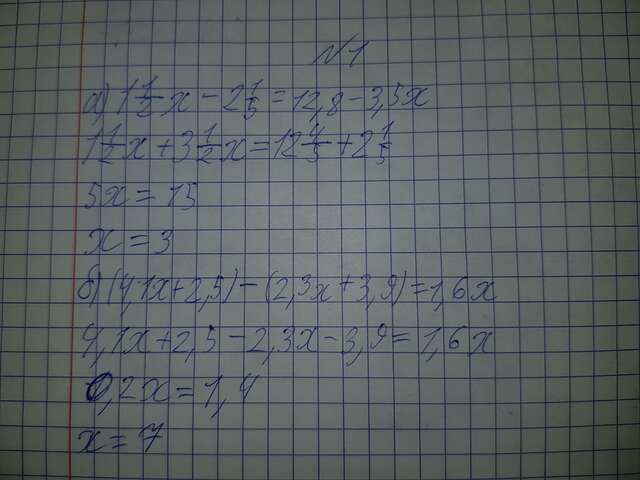 №1
а) 1 1/2 x - 2 1/5 = 12,8 - 3,5x
1 1/2 x + 3 1/2 x = 12 4/5 + 2 1/5
5x = 15
x = 3
б) (4,1x + 2,5) - (2,3x + 3,9) = 1,6x
4,1x + 2,5 - 2,3x - 3,9 = 1,6x
0,2x = 1,4
x = 7